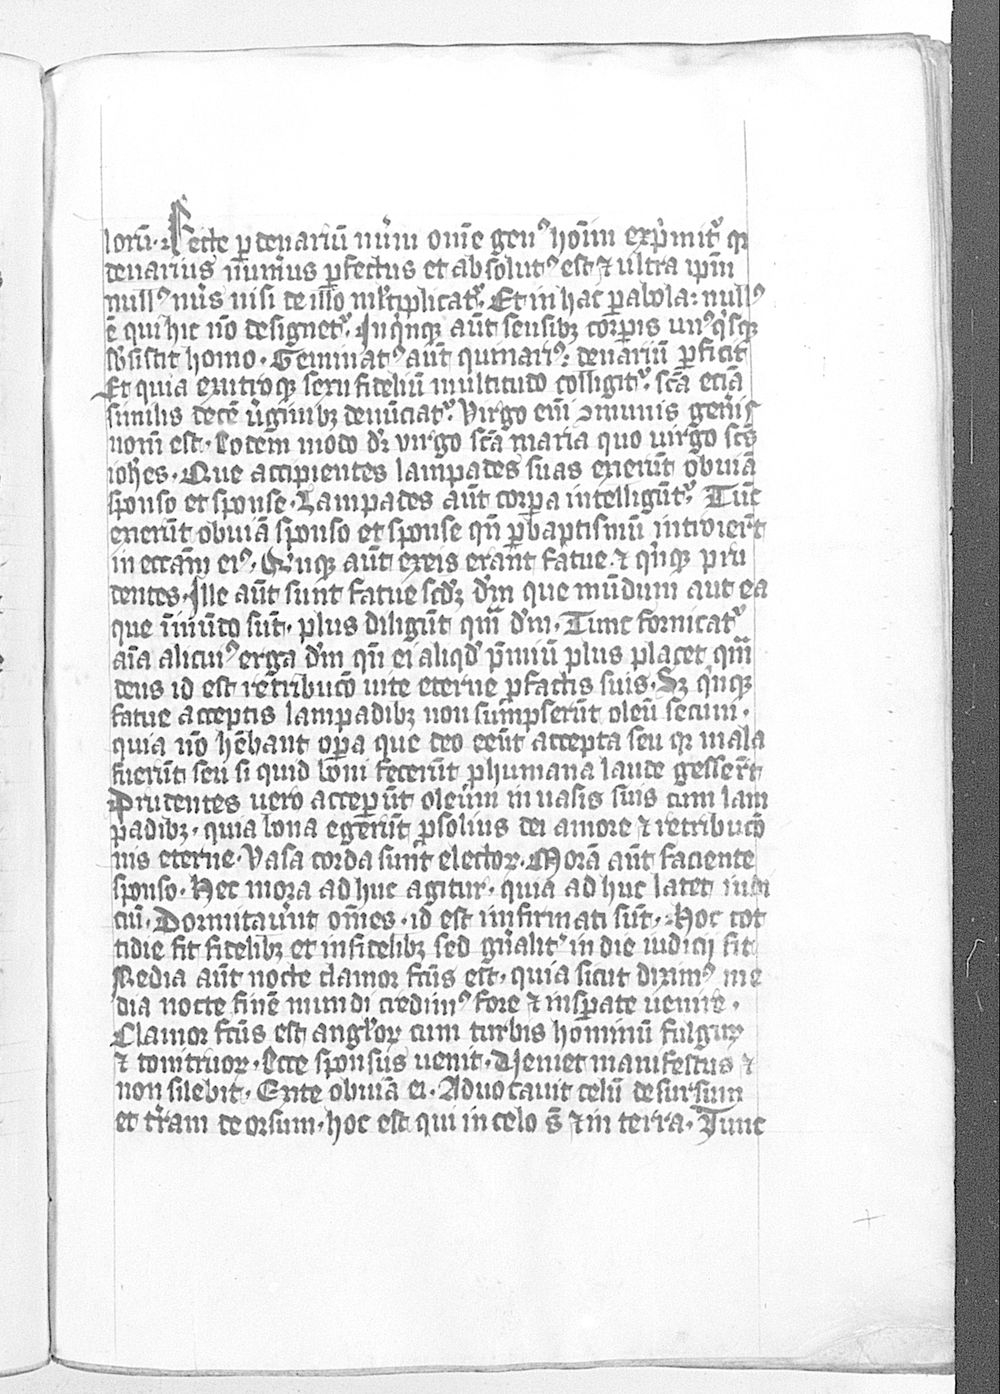 lorū. Recte ꝑ denariū nūm om̄e genꝰ hoīm exp̄mitᷣ qꝛ
denarius numus ꝑfectus et absolutꝰ est ⁊ ultra ipm̄
nullꝰ nūs nisi de illo ml̄tiplicatᷣ. Et in hac ꝑabola: nullꝰ
ē qui hic nō designetᷣ. Inqͥnqꝫ aūt sensibꝫ corꝑis unꝰqͥsqꝫ
sb̄sistit homo. Geminatꝰ aūt quinariꝰ: denariū ꝑficit
Et quia ex utroqꝫ sexu fideliū multitudo colligitᷣ. scā ecīa
similis decē v̄ginibꝫ denūciatᷣ. Virgo eīm ꝯmunis gen̄is
nom̄ est. Eodem modo dꝛ virgo scā maria quo uirgo scs̄
ioh̄es. Que accipientes lampades suas exierūt obuiā
sponso et sponse. Lampades aūt corꝑa intelligūtᷣ. Tūc
exierūt obuiā sponso et sponse qn̄ ꝑ baptismū introier̄t
in eccām eiꝰ. Qͥnqꝫ aūt ex eis eran̄t fatue. ⁊ qͥnqꝫ pru
dentes. Ille aūt sunt fatue scdꝫ dm̄ que mūdum aut ea
que ī mūdo sūt. plus diligūt qm̄ dm̄. Tunc fornicatᷣ
aīa alicuiꝰ erga dm̄ qn̄ ei aliqd̄ p̄miū plus placet qm̄
deus id est retribucō uite eterne ꝓ factis suis. Sꝫ qͥnqꝫ
fatue acceptis lampadibꝫ non sumpserūt oleū secum.
quia nō hēbant oꝑa que deo eēnt accepta seu qꝛ mala
fuerūt seu si quid boni fecerūt ꝓ humana laude gesser̄t
Prudentes uero acceperūt oleum in uasis suis cum lam
padibꝫ. quia bona egerūt ꝓ solius dei amore ⁊ retribucō
nis eterne. Vasa corda sunt electoꝝ. Morā aūt faciente
sponso. Hec mora ad huc agitur. quia ad huc latet iudi
ciū. Dormitauūt om̄es. id est infirmati sūt. Hoc cot
tidie fit fidelibꝫ et infidelibꝫ sed gn̄alitᷣ in die iudicij fit
Media aūt nocte clamor fcūs est. quia sicut diximꝰ me
dia nocte finē mundi credimꝰ fore ⁊ insꝑate uenire.
Clamor fcūs est angl̄oꝝ cum turbis hominū fulguꝝ
⁊ tonitruoꝝ. Ecce sponsus uenit. Id est ueniet manifestus ⁊
non silebit. Exite obuiā ei. Aduocauit celū desursum
et tr̄am deorsum. hoc est qui in celo s̄ ⁊ in terra. Tunc